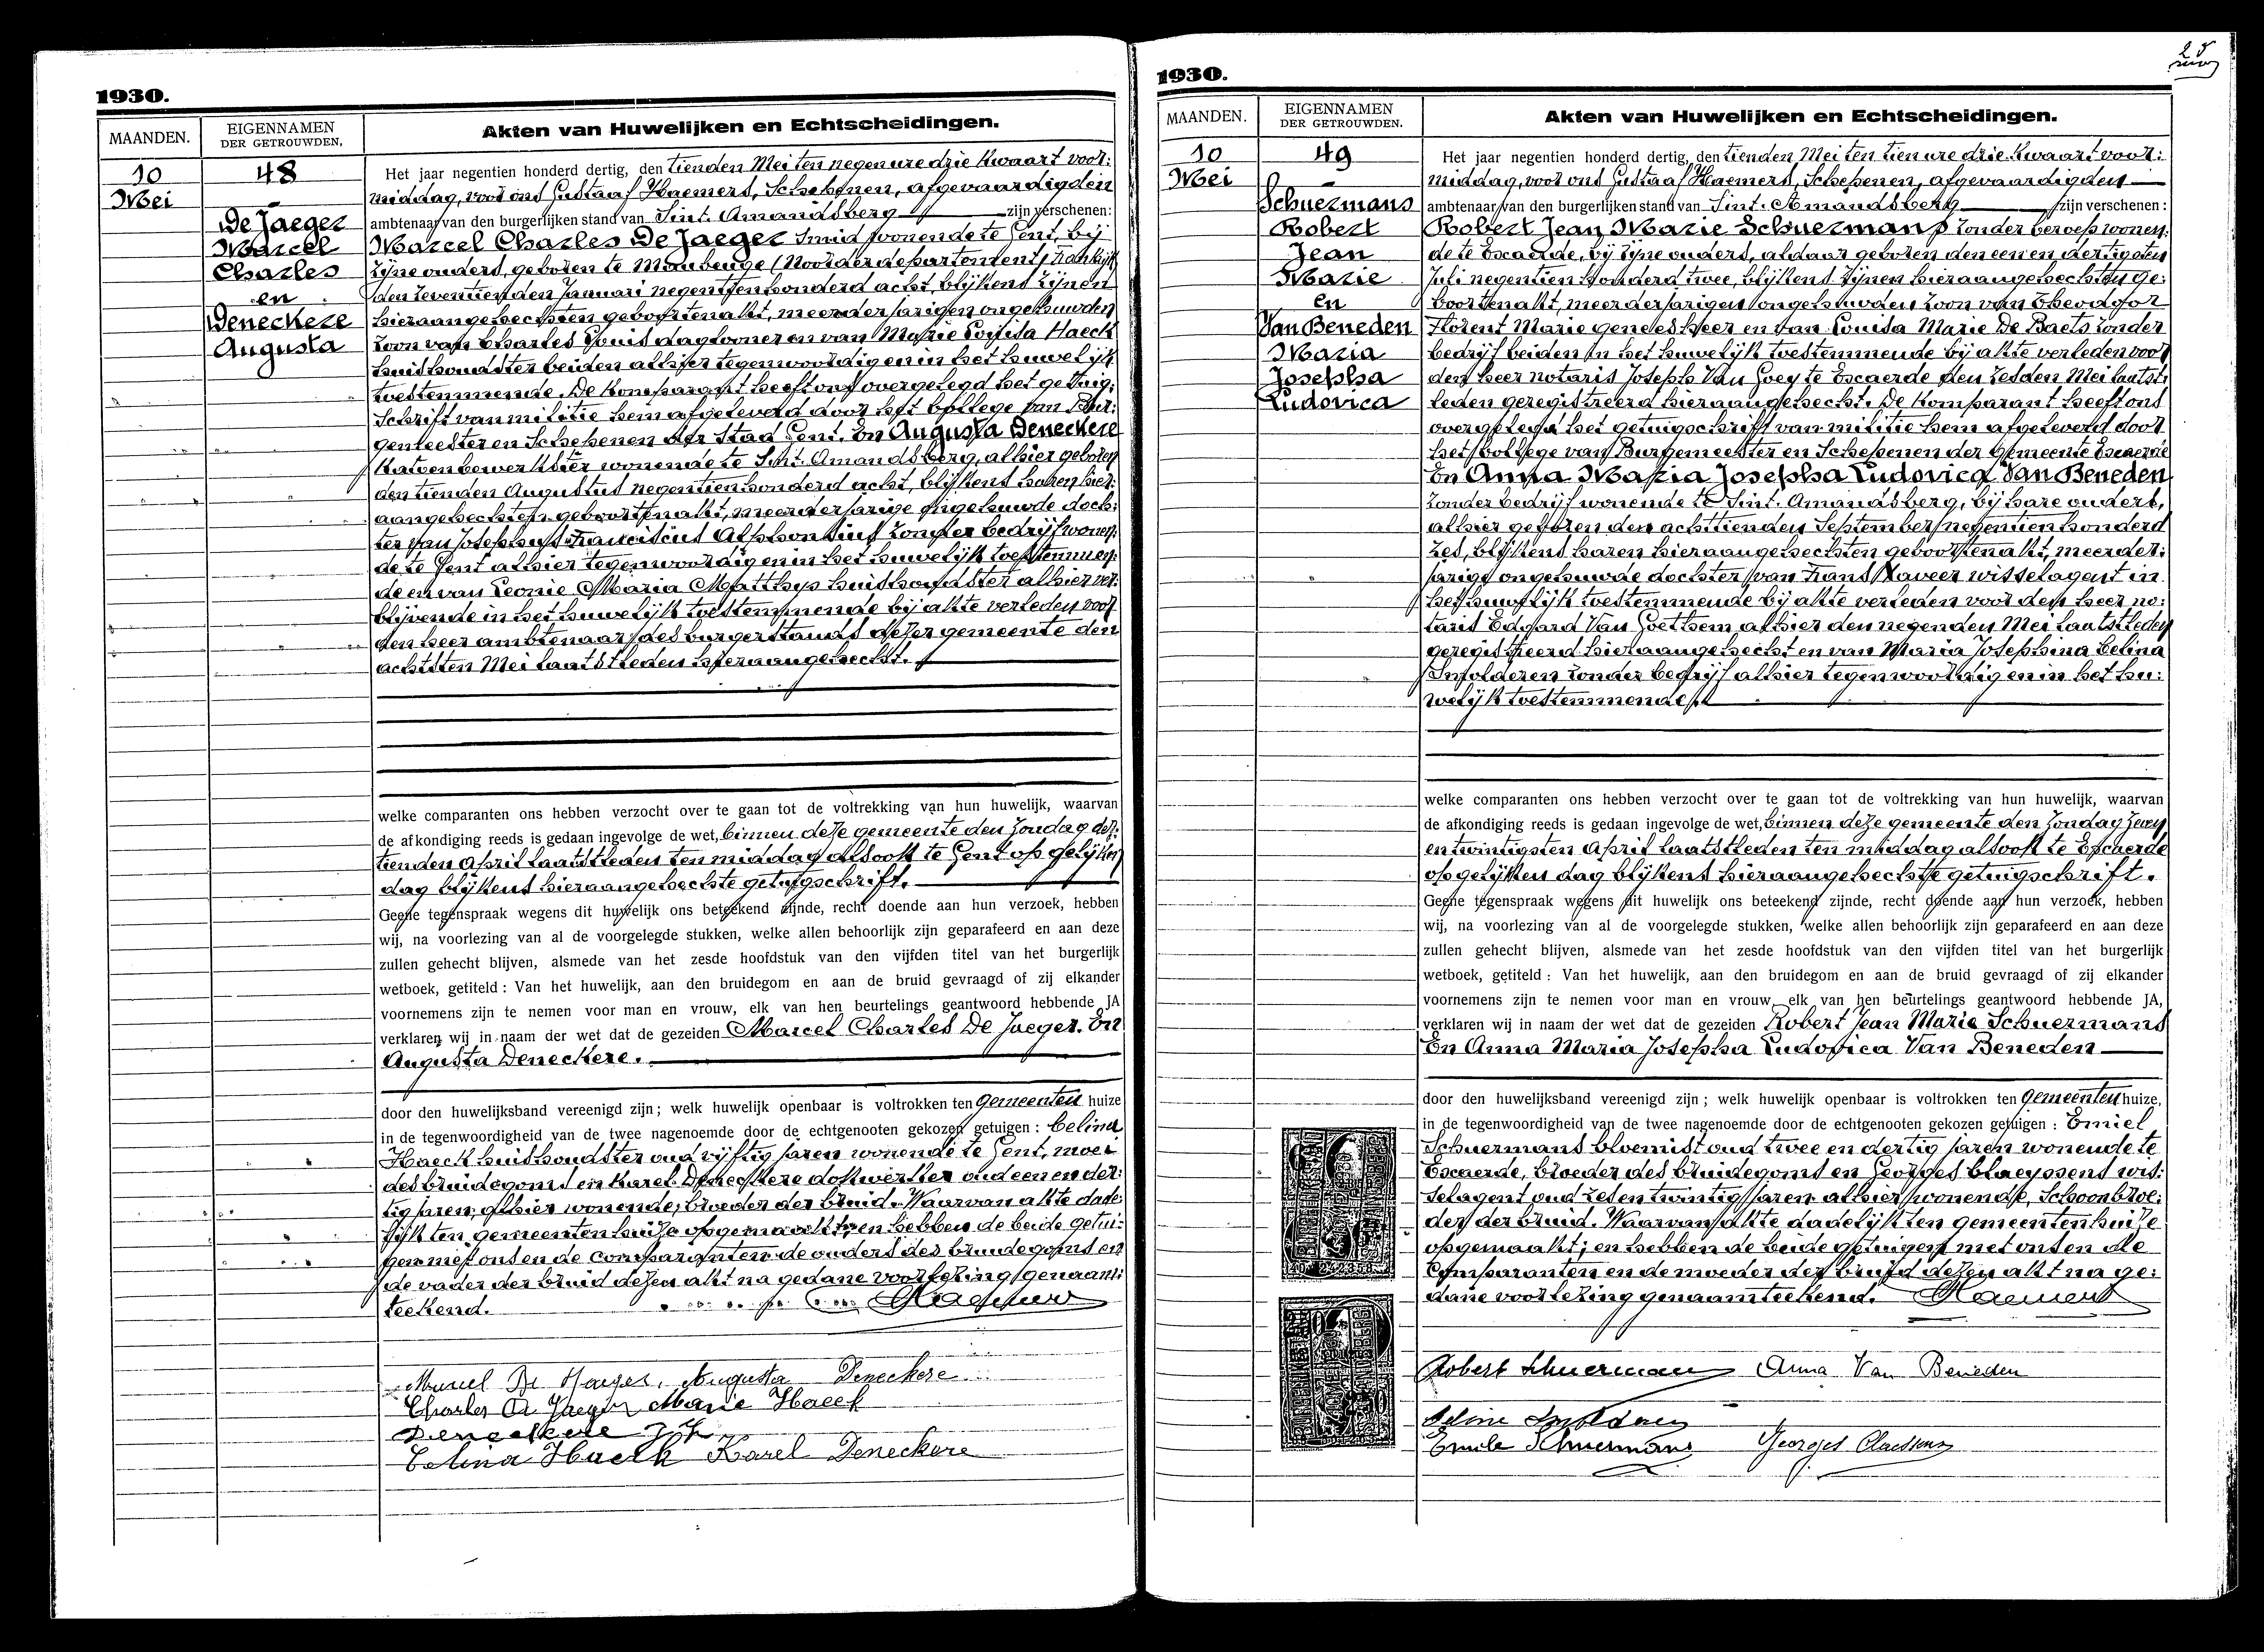 1930.
MAANDEN.
EIGENNAMEN
DER GETROUWDEN.
Akten van Huwelijken en Echtscheidingen.
10
Mei
48
De Jaeger
Marcel
Charles
en
Deneckere
Augusta
Het jaar negentien honderd dertig, den tienden Mei ten negen ure drie kwaart voor:
middag, voor ons Gustaaf Haemers, Schepenen, afgevaardigden
ambtenaar van den burgerlijken stand van Sint. Amandsberg zijn verschenen:
Marcel Charles De Jaeger Smid wonende te Gent, bij
zijne ouders, geboren te Maubeuge (Noorder departement) Frankrijk
den zeventienden Januari negentienhonderd acht, blijkens zijnen
hieraangehechten geboortenakt, meerderjarigen ongehuwden
zoon van Charles Louis daglooner en van Marie Louisa Haeck
huishoudster beiden alhier tegenwoordig en in het huwelijk
toestemmende. De komparant heeft ons overgelegd het getuig:
schrift van militie hem afgeleverd door het College van Bur:
gemeester en Schepenen der Stad Gent. En Augusta Deneckere
Katoenbewerkster wonende te Sint. Amandsberg, alhier geboren
den tienden Augustus negentienhonderd acht, blijkens haren hier:
aangehechten geboortenakt, meerderjarige ongehuwde doch:
ter van Josephus Franciscus Alphonsius zonder bedrijf wonen:
de te Gent alhier tegenwoordig en in het huwelijk toestemmen:
de en van Leonie Maria Matthys huishoudster alhier ver:
blijvende in het huwelijk toestemmende bij akte verleden voor
den heer ambtenaar des burgerstands dezer gemeente den
achtsten Mei laatstleden hieraangehecht.
welke comparanten ons hebben verzocht over te gaan tot de voltrekking van hun huwelijk, waarvan
de afkondiging reeds is gedaan ingevolge de wet, binnen deze gemeente den Zondag der:
tienden April laatstleden ten middag alsook te Gent op gelijken
dag blijkens hieraangehechte getuigschrift.
Geene tegenspraak wegens dit huwelijk ons beteekend zijnde, recht doende aan hun verzoek, hebben
wij, na voorlezing van al de voorgelegde stukken, welke allen behoorlijk zijn geparafeerd en aan deze
zullen gehecht blijven, alsmede van het zesde hoofdstuk van den vijfden titel van het burgerlijk
wetboek, getiteld : Van het huwelijk, aan den bruidegom en aan de bruid gevraagd of zij elkander
voornemens zijn te nemen voor man en vrouw, elk van hen beurtelings geantwoord hebbende JA
verklaren wij in naam der wet dat de gezeiden Marcel Charles De Jaeger. En
Augusta Deneckere.
door den huwelijksband vereenigd zijn ; welk huwelijk openbaar is voltrokken ten Gemeenten huize
in de tegenwoordigheid van de twee nagenoemde door de echtgenooten gekozen getuigen : Celina
Haeck huishoudster oud vijftig jaren wonende te Gent, moei
des bruidegoms en Karel Deneckere dokwerker oud een en der:
tig jaren, alhier wonende, broeder der bruid. Waarvan akte dade:
lijk ten gemeentenhuize opgemaakt; en hebben de beide getui:
gen met ons en de comparanten de ouders des bruidegoms en
de vader der bruid dezen akt na gedane voorlezing genaam:
teekend.
Haemers
Marcel De Jaeger. Augusta Deneckere
Charles De Jaeger Marie Haeck
Deneckere Jph
Celina Haeck Karel Deneckere
1930.
MAANDEN.
EIGENNAMEN
DER GETROUWDEN.
Akten van Huwelijken en Echtscheidingen.
10
Mei
49
Schuermans
Robert
Jean
Marie
en
Van Beneden
Maria
Josepha
Ludovica
Het jaar negentien honderd dertig, den tienden Mei ten tien ure drie kwaart voor:
middag, voor ons Gustaaf Haemers, Schepenen, afgevaardigden
ambtenaar van den burgerlijken stand van Sint. Amandsberg zijn verschenen :
Robert Jean Marie Schuermans zonder beroep wonen:
de te Escaerde, bij zijne ouders, aldaar geboren den een en dertigsten
Juli negentien honderd twee, blijkens zijnen hieraangehechten ge:
boortenakt, meerderjarigen ongehuwden zoon van
Florent Marie geneesheer en van Louisa Marie De Baets zonder
bedrijf beiden in het huwelijk toestemmende bij akte verleden voor
den heer notaris Joseph Van Goey te Escaerde den zesden Mei laatst:
leden geregistreerd hieraangehecht. De komparant heeft ons
overgelegd het getuigschrift van militie hem afgeleverd door
het College van Burgemeester en Schepenen der gemeente Escaerde
En Anna Maria Josepha Ludovica Van Beneden
zonder bedrijf wonende te Sint. Amandsberg, bij hare ouders,
alhier geboren den achttienden September negentien honderd
zes, blijkens haren hieraangehechten geboortenakt, meerder:
jarige ongehuwde dochter van Frans Xaveer wisselagent in
het huwelijk toestemmende bij akte verleden voor den heer no:
taris Edgard Van Goethem alhier den negenden Mei laatstleden
geregistreerd hieraangehecht en van Maria Josephina Celina
Impolderen zonder bedrijf alhier tegenwoordig en in het hu:
welijk toestemmende.
welke comparanten ons hebben verzocht over te gaan tot de voltrekking van hun huwelijk, waarvan
de afkondiging reeds is gedaan ingevolge de wet, binnen deze gemeente den Zondag zeven
en twintigsten April laatstleden ten middag alsook te Escaerde
op gelijken dag blijkens hieraangehechtste getuigschrift.
Geene tegenspraak wegens dit huwelijk ons beteekend zijnde, recht doende aan hun verzoek, hebben
wij, na voorlezing van al de voorgelegde stukken, welke allen behoorlijk zijn geparafeerd en aan deze
zullen gehecht blijven, alsmede van het zesde hoofdstuk van den vijfden titel van het burgerlijk
wetboek, getiteld : Van het huwelijk, aan den bruidegom en aan de bruid gevraagd of zij elkander
voornemens zijn te nemen voor man en vrouw elk van hen beurtelings geantwoord hebbende JA,
verklaren wij in naam der wet dat de gezeiden Robert Jean Marie Schuermans
En Anna Maria Josepha Ludovica Van Beneden
door den huwelijksband vereenigd zijn ; welk huwelijk openbaar is voltrokken ten Gemeenten huize,
in de tegenwoordigheid van de twee nagenoemde door de echtgenooten gekozen getuigen : Emiel
Schuermans bloemist oud twee en dertig jaren wonende te
Escaerde, broeder des bruidegoms en Georges Claeyssens wis:
selagent oud zes en twintig jaren alhier wonende, Schoonbroe:
der der bruid. Waarvan akte dadelijk ten gemeentenhuize
opgemaakt; en hebben de beide getuigen met ons en de
Comparanten en de moeder der bruid dezen akt na ge:
dane voorlezing genaamteekend. Haemers
Robert Schuermans Anna Van Beneden
Emile Schuermans Georges Claessens